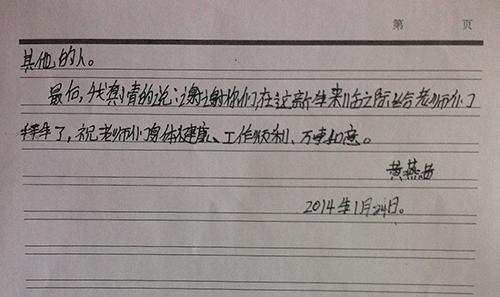 第 页
其他的人。
最后,我真情的说:谢谢你们,在这新年来临之际给老师们
拜年了,祝老师们身体健康、工作顺利、万事如意。
黄燕
2014年1月24日。